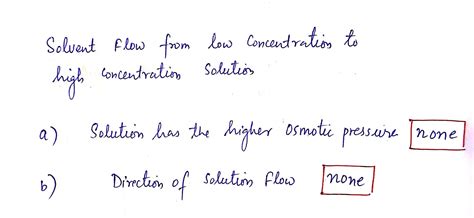 Solvent Flow from low Concentration to
high Concentration Solution
a) Solution has the higher Osmotic pressure none
b) Direction of Solution Flow none